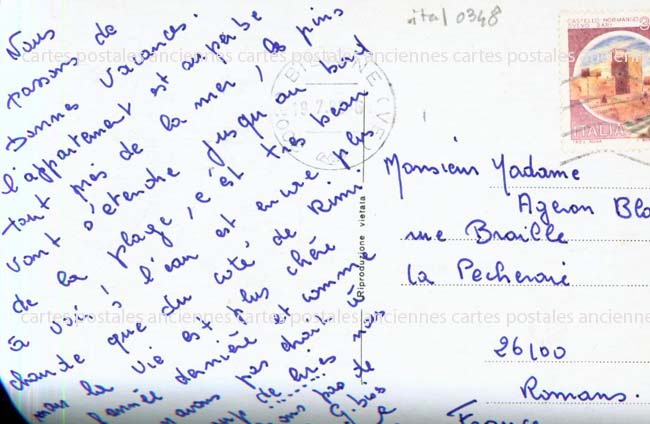 Nous
passons de
bonnes vacances.
l'appartement est superbe
tout près de la mer, la pins
vont s'étendre jusqu'au bord
de la plage, c'est très beau
à voir, l'eau est encore plus
chaude que du côté de Rimi.
mais la vie est plus chère
l'année dernière et comme
avons pas choisi
pas de
G. bises
ital 0348
CASTELLO NORMANNO
SVEVO BARI
ITALIA
19.7
Riproduzione vietata
Monsieur Madame
Ageron
rue Braille
La Pecheraie
26100
Romans.
France
cartes postales anciennes cartes postales anciennes cartes postales anciennes
cartes postales anciennes cartes postales anciennes cartes postales anciennes